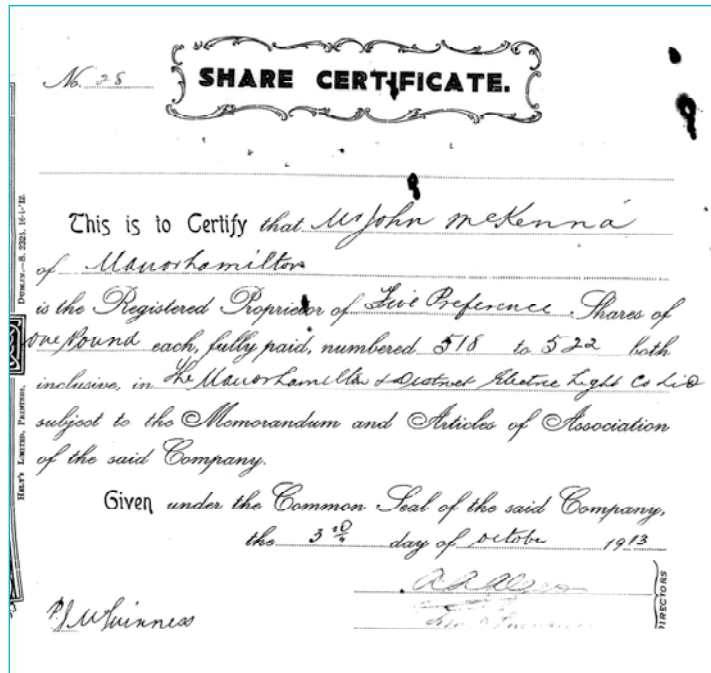 No. 28
SHARE CERTIFICATE.
This is to Certify that Mr John McKenna
of Manorhamilton
is the Registered Proprietor of Five Preference Shares of
one Pound each, fully paid, numbered 518 to 522 both
inclusive, in The Manorhamilton & District Electric Light Co Ltd
subject to the Memorandum and Articles of Association
of the said Company.
Given under the Common Seal of the said Company,
the 3rd day of October 1913
P J McGuinness
DIRECTORS
HELY'S LIMITED, PRINTERS, DUBLIN.—S. 2325. 16-1-'12.